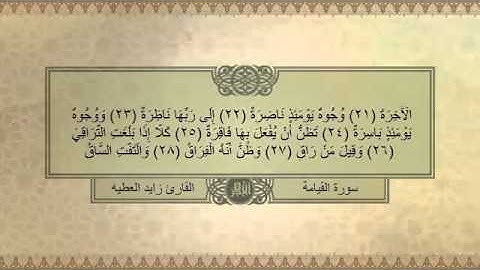 الْآخِرَةَ (٢١) وُجُوهٌ يَوْمَئِذٍ نَاضِرَةٌ (٢٢) إِلَى رَبِّهَا نَاظِرَةٌ (٢٣) وَوُجُوهٌ
يَوْمَئِذٍ بَاسِرَةٌ (٢٤) تَظُنُّ أَنْ يُفْعَلَ بِهَا فَاقِرَةٌ (٢٥) كَلَّا إِذَا بَلَغَتِ التَّرَاقِيَ
(٢٦) وَقِيلَ مَنْ رَاقٍ (٢٧) وَظَنَّ أَنَّهُ الْفِرَاقُ (٢٨) وَالْتَفَّتِ السَّاقُ
سورة القيامة
القارئ زايد العطيه